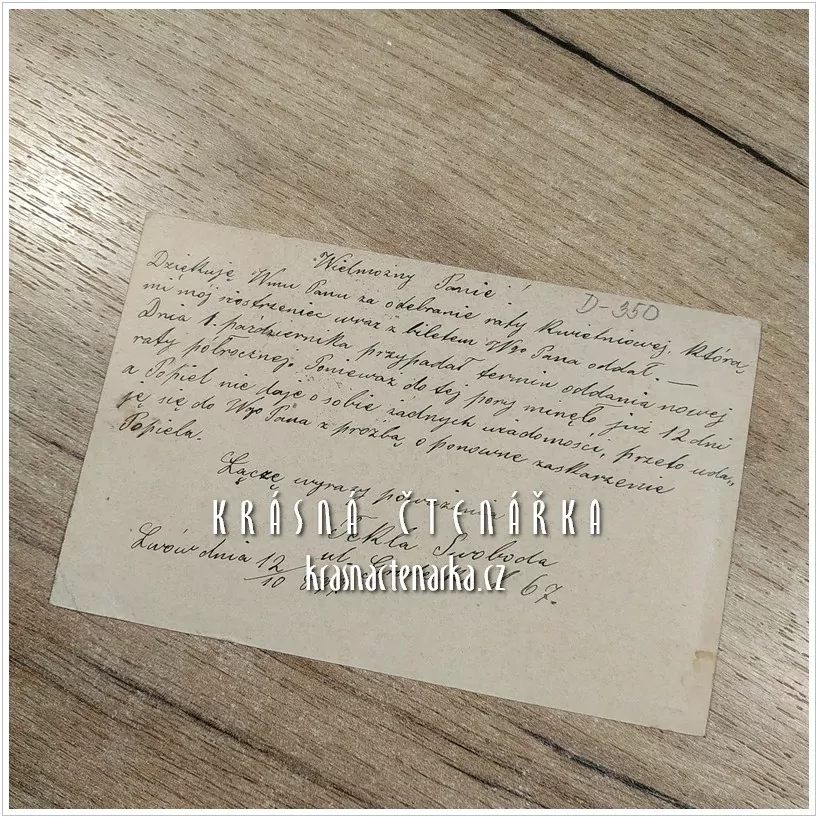 Wielmożny Panie!
D-350
Dziękuję Wmu Panu za odebranie raty kwietniowej, którą
mi mój siostrzeniec wraz z biletem Wgo Pana oddał. —
Dnia 1. października przypadał termin oddania nowej
raty półrocznej. Ponieważ do tej pory minęło już 12 dni
a Popiel nie daje o sobie żadnych wiadomości, przeto uda„
ję się do Wgo Pana z prośbą o ponowne zaskarżenie
Popiela.
Łączę wyrazy poważania
KRÁSNÁ ČTENÁŘKA
Tekla Swoboda
Lwów dnia 12/10
ul. 67.
krasnactenarka.cz